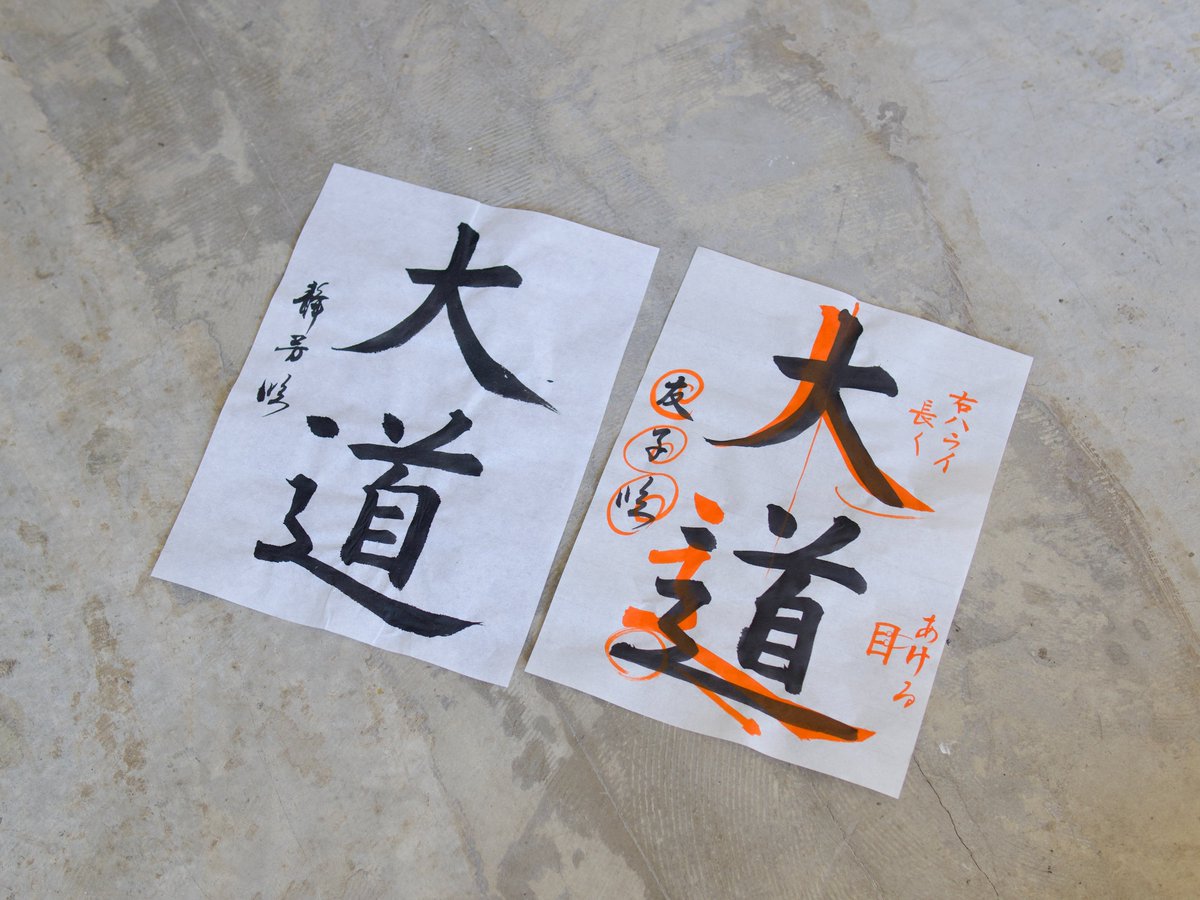 大道
静芳臨
右ハライ
長く
あける
目
大道
友子臨